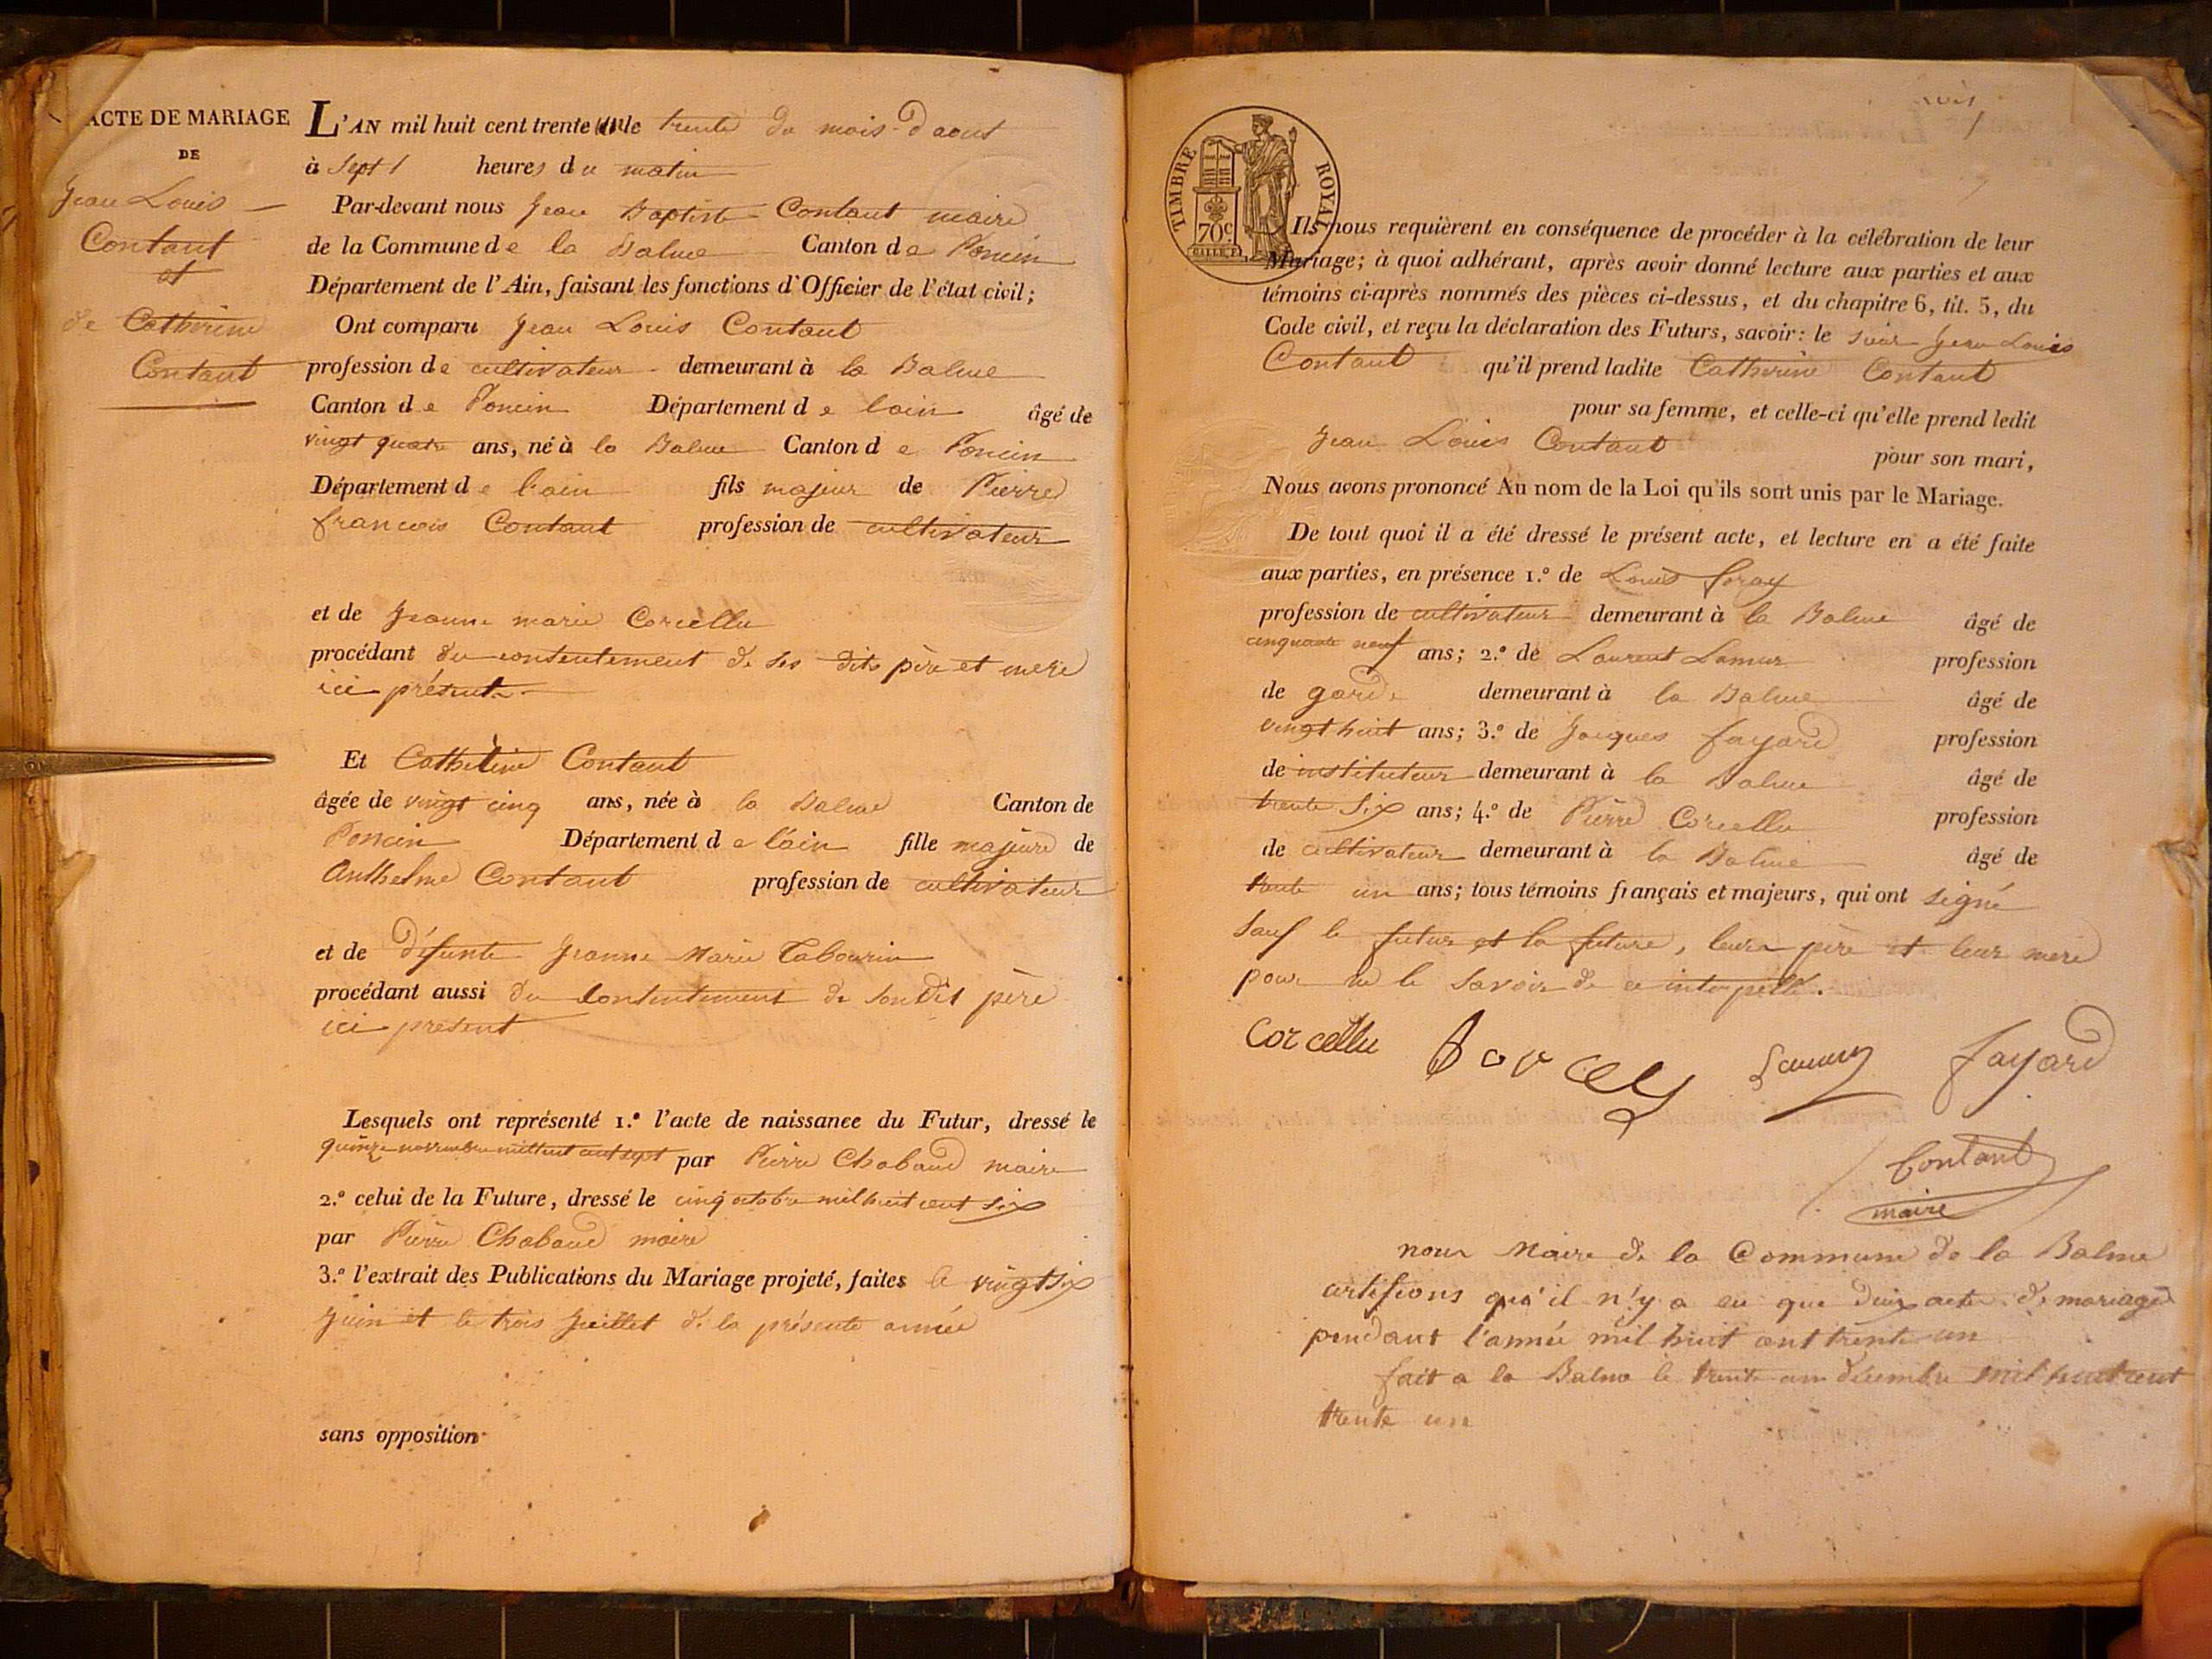 ACTE DE MARIAGE
DE
Jean Louis
Contant
et
de Catherine
Contant
L'AN mil huit cent trente un le trente du mois d'aout
à sept heures du matin
Par-devant nous Jean Baptiste Contant maire
de la Commune de la Balme Canton de Poncin
Département de l'Ain, faisant les fonctions d'Officier de l'état civil;
Ont comparu Jean Louis Contant
profession de cultivateur demeurant à la Balme
Canton de Poncin Département de lain âgé de
vingt quatre ans, né à la Balme Canton de Poncin
Département de l'ain fils majeur de Pierre
francois Contant profession de cultivateur
et de Jeanne marie Corcellu
procédant du consentement de ses dits père et mere
ici présents
Et Catherine Contant
âgée de vingt cinq ans, née à la Balme Canton de
Poncin Département de láin fille majeure de
Anthelme Contant profession de cultivateur
et de défunte Jeanne Marie Tabourin
procédant aussi du consentement de son dit père
ici présent
Lesquels ont représenté 1.° l'acte de naissance du Futur, dressé le
quinze novembre mil huit cent sept par Pierre Chabaud maire
2.° celui de la Future, dressé le cinq octobre mil huit cent six
par Pierre Chabaud maire
3.° l'extrait des Publications du Mariage projeté, faites le vingt six
juin et le trois Juillet de la présente année
sans opposition
TIMBRE ROYAL
70c.
Ils nous requièrent en conséquence de procéder à la célébration de leur
Mariage; à quoi adhérant, après avoir donné lecture aux parties et aux
témoins ci-après nommés des pièces ci-dessus, et du chapitre 6, tit. 5, du
Code civil, et reçu la déclaration des Futurs, savoir: le sieur Jean Louis
Contant qu'il prend ladite Catherine Contant
pour sa femme, et celle-ci qu'elle prend ledit
Jean Louis Contant pour son mari,
Nous avons prononcé Au nom de la Loi qu'ils sont unis par le Mariage.
De tout quoi il a été dressé le présent acte, et lecture en a été faite
aux parties, en présence 1.° de Louis foray
profession de cultivateur demeurant à la Balme âgé de
cinquante neuf ans; 2.° de Laurent Lamur profession
de garde demeurant à la Balme âgé de
vingt huit ans; 3.° de Jacques fayard profession
de instituteur demeurant à la Balme âgé de
trente six ans; 4.° de Pierre Corcellu profession
de cultivateur demeurant à la Balme âgé de
trente un ans; tous témoins français et majeurs, qui ont signé
sauf le futur et la future, leurs père et leur mere
pour ne le savoir de ce interpellé.
Corcellu fayard
Contant
maire
nous Maire de la Commune de la Balme
certifions qu'il n'y a eu que deux actes de mariage
pendant l'année mil huit cent trente un
fait a la Balme le trente un décembre mil huit cent
trente un